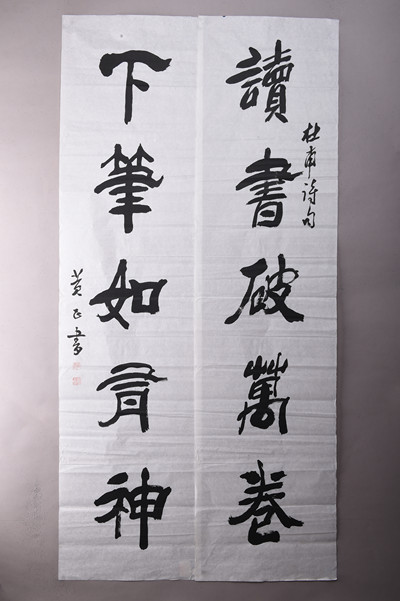 讀書破萬卷
杜甫詩句
下筆如有神
黃正